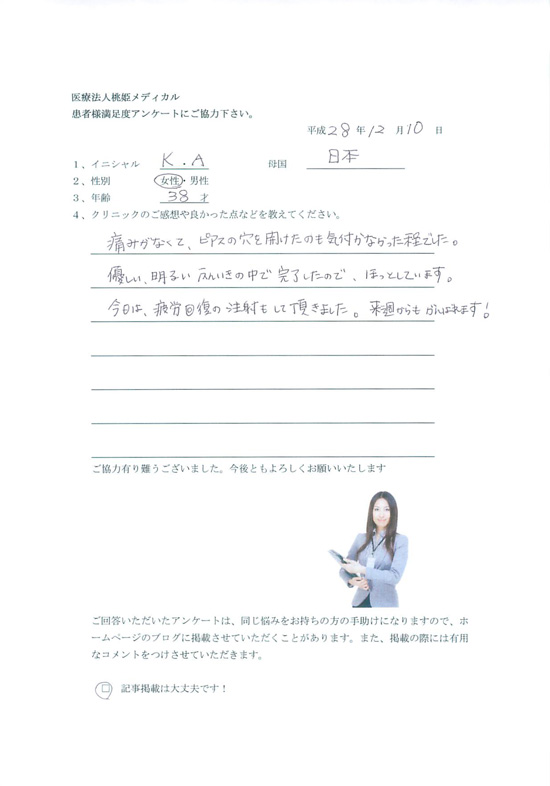 医療法人桃姫メディカル
患者様満足度アンケートにご協力下さい。
平成28年12月10日
1、イニシャル K.A 母国 日本
2、性別 女性・男性
3、年齢 38才
4、クリニックのご感想や良かった点などを教えてください。
痛みがなくて、ピアスの穴を開けたのも気付かなかった程でした。
優しい、明るいふんいきの中で完了したので、ほっとしています。
今日は、疲労回復の注射もして頂きました。来週からもがんばれます!
ご協力有り難うございました。今後ともよろしくお願いいたします
ご回答いただいたアンケートは、同じ悩みをお持ちの方の手助けになりますので、ホ
ームページのブログに掲載させていただくことがあります。また、掲載の際には有用
なコメントをつけさせていただきます。
□ 記事掲載は大丈夫です!